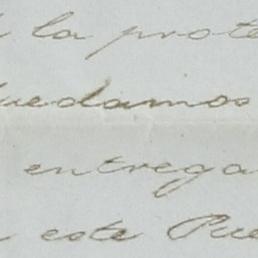 la prote
quedamos
entrega
este Pue